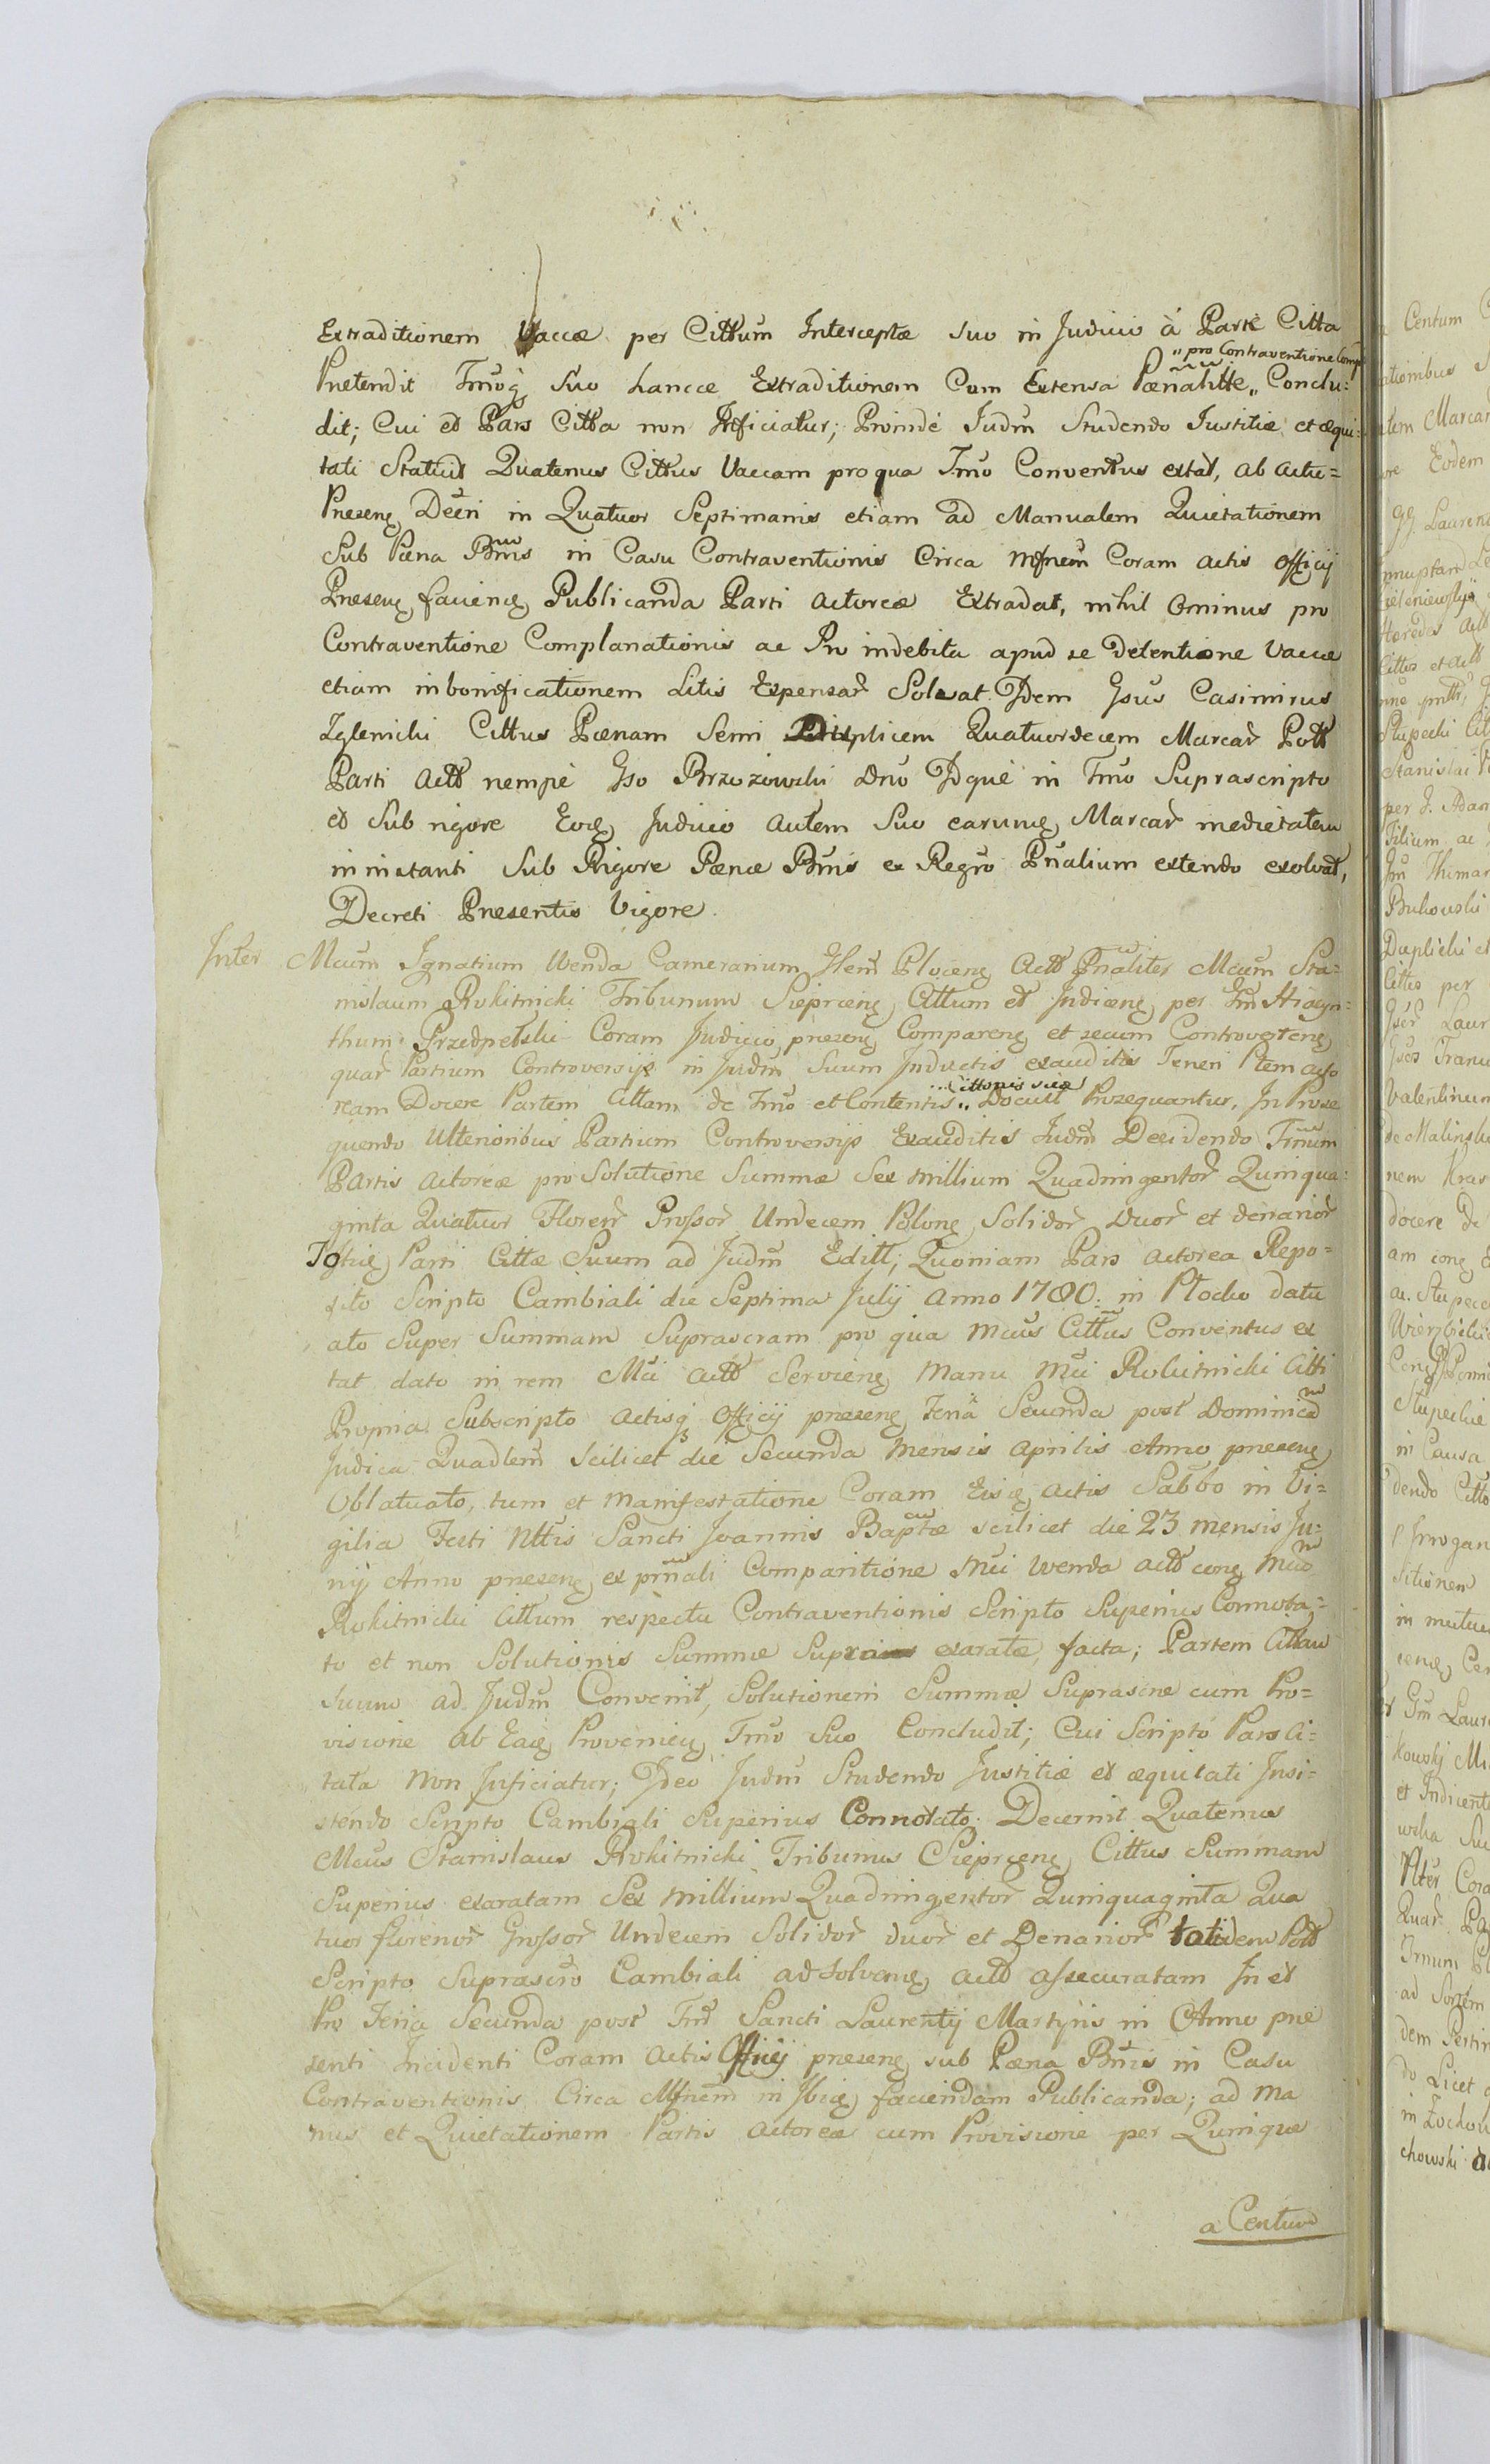 Extraditionem Vaccæ per Cittum Interceptæ suo in Judicio à Parte Citta
"pro Contraventione Comp
Prætendit Tmoq suo hancce Extraditionem Cum Extensa Pænalitte „ Conclu:
dit; Cui et Pars Citta non Inficiatur; Proindè Judm Studendo Justitiæ et æqui:
tati Statuit Quatenus Cittus Vaccam pro qua Tmo Conventus extat, ab actu=
Præsenę Decri in Quatuor Septimanis etiam ad Manualem Quietationem
Sub Pæna Bnis in Casu Contraventionis Circa Mfnem Coram actis officij
Præsenę facienę Publicanda Parti actoreæ Extradat, nihil Ominus pro
Contraventione Complanationis ac Pro indebita apud se Detentione Vaccæ
etiam in bonificationem Litis Expensar Solvat Idem Gsus Casimirus
Zglenicki Cittus Pænam Semi Duplicem Quatuordecem Marcar Poll
Parti actt nempè Gso Brzozowski dno Idquè in Tmo Suprascripto
et Sub rigore Eoę Judicio autem Suo earumę Marcar medietatem
in instanti Sub Rigore Pænæ Bnis ex Regro Pnalium extendo exolvat,
Decreti Præsentis Vigore.
Inter Mcum Ignatium Wenda Camerarium Hem Plocenę Actt Pnaliter Mcum Sta:
nislaum Rokitnicki Tribunum Sieprcenę Cittum et Indicenę per Gm Hiacyn:
thum Przedpelski Coram Judicio præsenę Comparenę et secum Controvertenę
quar Partium Controversijs in Judm Suum Inductis exauditis Teneri Ptem acto
...Cittonis suæ
ream Docere Partem Cittam de Tmo et Contentis „ Docuit Prosequantur, In Prose
quendo Ulterioribus Partium Controversijs Exauditis Judm Decidendo Tmum
Partis actoreæ pro Solutione Summæ Sex millium Quadringentor Quinqua:
ginta Quatuor Floren Grossor Undecem Polonę Solidor Duor et denarior
Totię Parti Cittæ Suum ad Judm Editt; Quoniam Pars actorea Repo=
sito Scripto Cambiali die Septima Julij Anno 1780: in Plocko datu
ato Super Summam Suprascram pro qua Mcus Cittus Conventus ex
tat dato in rem Mci actt Servienę Manu Mci Rokitnicki Citti
Propria Subscripto actisq Officij præsenę Feria Secunda post Dominicā
Judica Quadlem scilicet die Secunda Mensis aprilis Anno præsenę
Oblatuato, tum et Manifestatione Coram Eisę actis Sabbo in Vi=
gilia Festi Nttis Sancti Joannis Baptæ scilicet die 23 mensis Ju:
nij Anno præsenę ex prnali Comparitione Mci Wenda actt conę Mcm
Rokitnicki Cittum respectu Contraventionis Scripto Superius Connota:
to et non Solutionis Summæ Supra exaratæ facta; Partem Cittam
Suum ad Judm Convenit, Solutionem Summæ Suprascræ cum Pro=
visione ab Eaę Provenieņ Tmo Suo Concludit; Cui Scripto Pars Ci=
tata Non Inficiatur; Ideo Judm Studendo Justitiæ et æquitati Insi=
stendo Scripto Cambiali Superius Connotato Decernit Quatenus
Mcus Stanislaus Rokitnicki Tribunus Sieprcenę Cittus Summam
Superius exaratam Sex millium Quadringentor Quinquaginta Qua
tuor florenor Grossor Undecem Solidor duor et Denarior totidem Poll
Scripto Suprascro Cambiali ad solvenę actt assecuratam In et
Pro Feria Secunda post Fm Sancti Laurentij Martyris in Anno præ
senti Incidenti Coram actis Officij præsenę sub Pæna Bnis in Casu
Contraventionis Circa Mfnem in Ibię faciendam Publicanda; ad Ma
nus et Quietationem Partis actoreæ cum Provisione per Quinque
a Centum